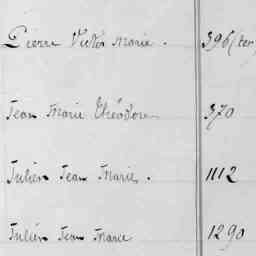 Pierre Victor Marie. 396 (ter
Jean Marie Théodore 370
Julien Jean Marie. 1112
Julien Jean Marie 1290